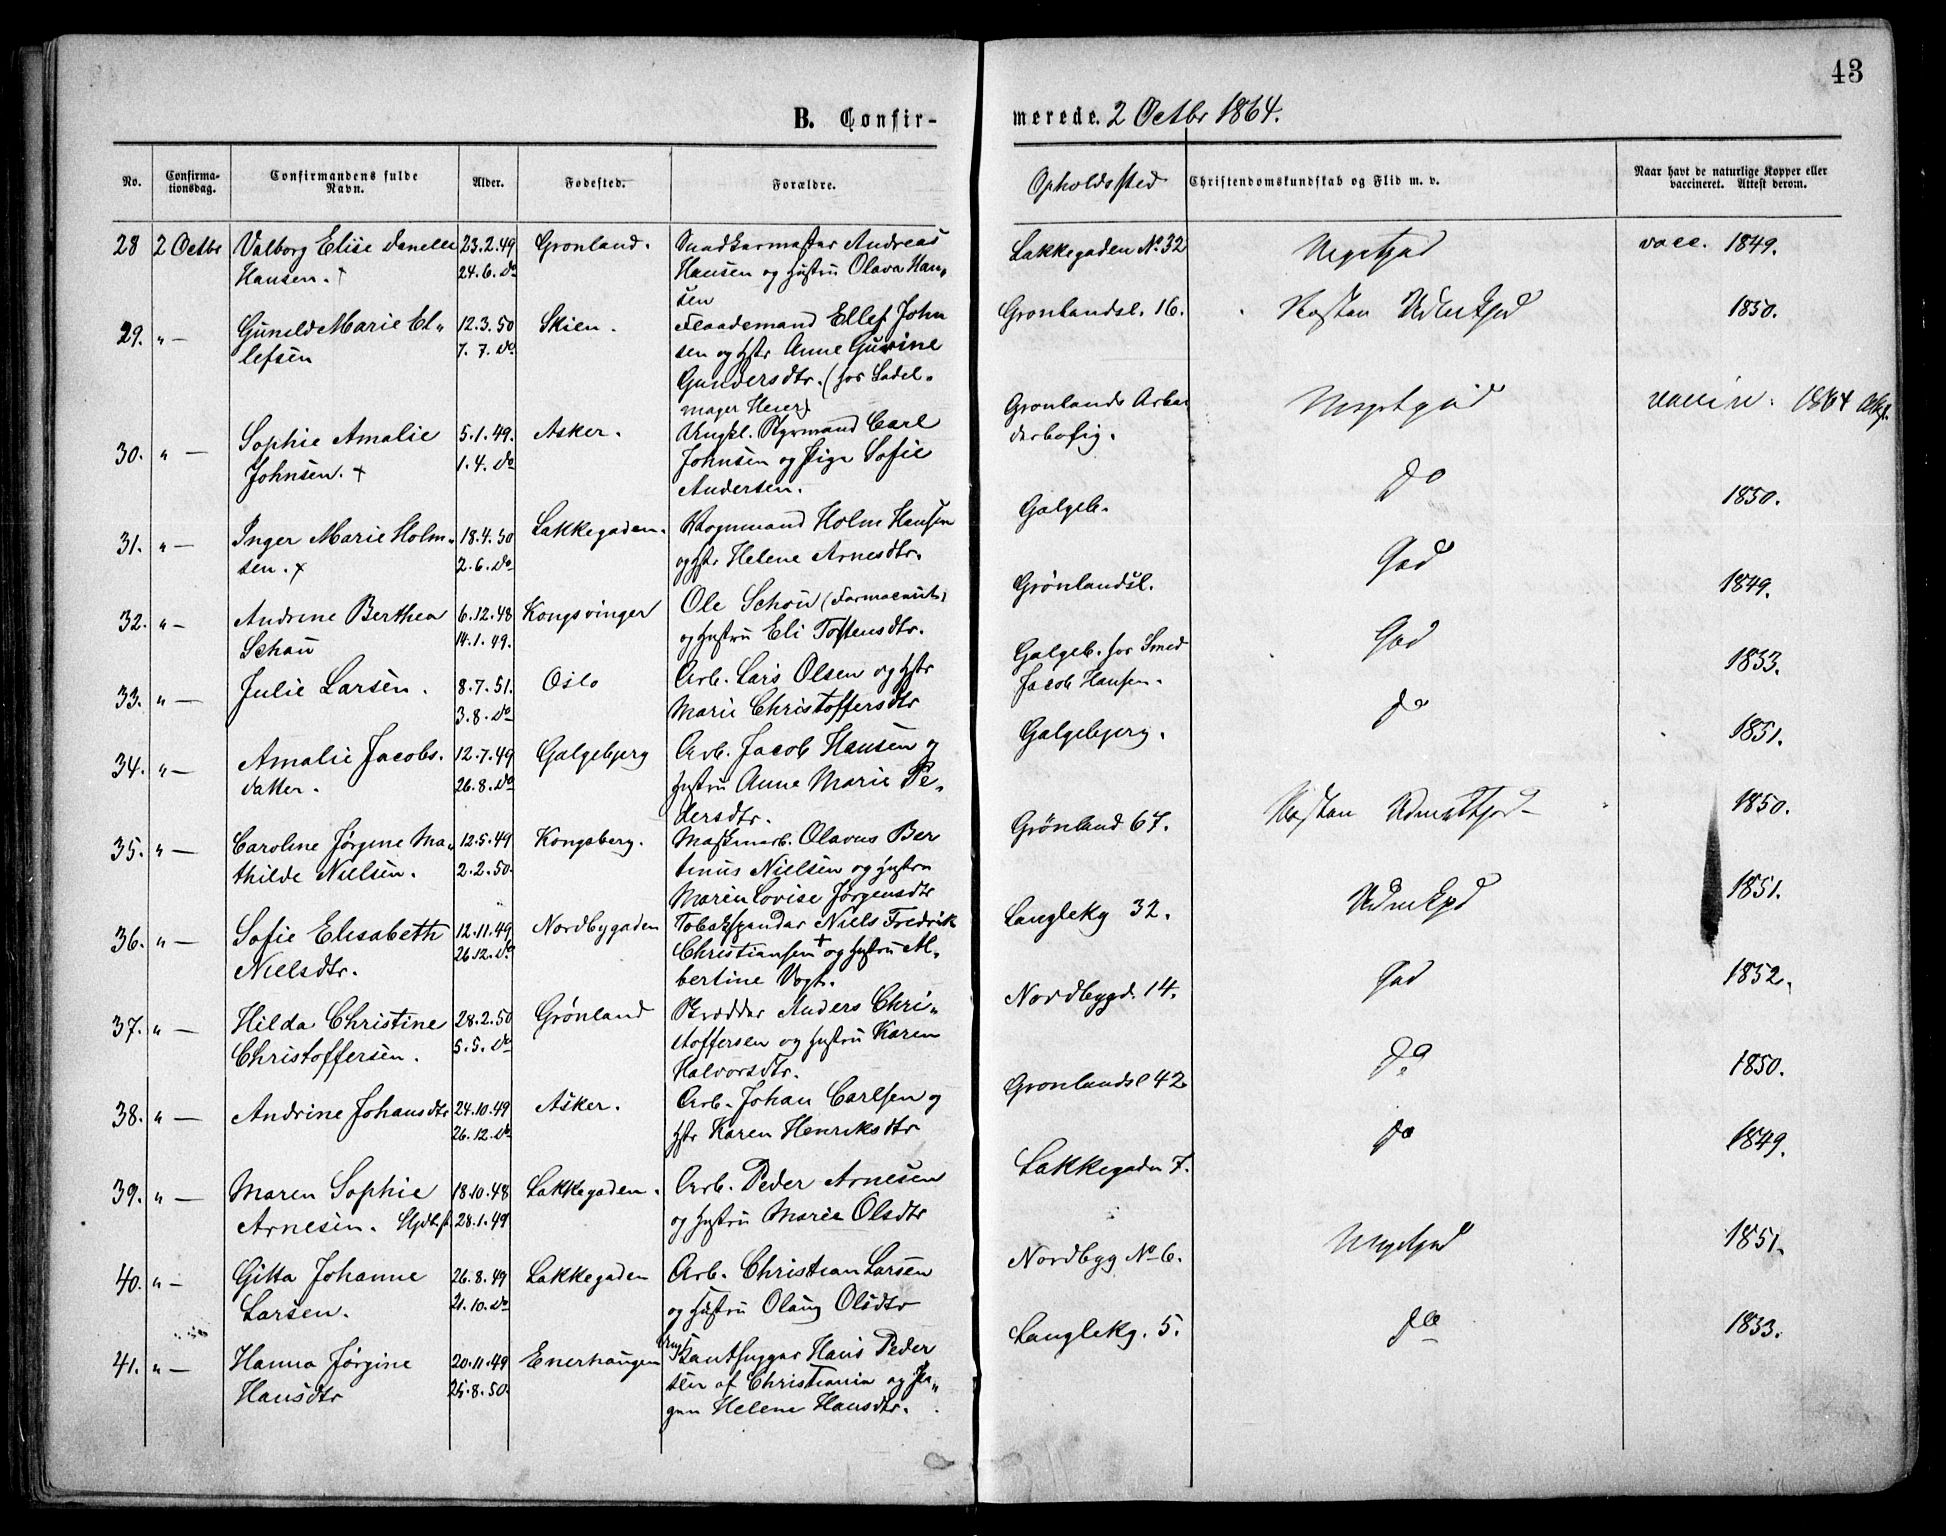 43
B. Confir- merede. 2 Octbr 1864.
No. Confirma-tionsdag. Confirmandens fulde Navn. Alder. Fødested. Forældre. Opholdssted Christendomskundskab og Flid m. v. Naar havt de naturlige Kopper eller vaccineret. Attest derom.
28 2 Octbr Valborg Elise 23.2.49 Grønland. Snedkermester Andreas Lakkegaden No. 32 Megetgod vacc. 1849.
Hansen. † 24.6. do Hansen og Hustru Olava Han-
sen
29. " — Gunild Marie El- 12.3.50 Skien. Flaademand Ellef John Grønlandsl. 16. Næsten Udmgod 1850.
lefsen 7. 7. do sen og Hstr Anne Gurine
Gundersdtr. (hos Sadel-
mager Heier)
30. " — Sophie Amalie 5.1.49. Asker. Ungkl. Styrmand Carl Grønlands Arbei Megetgod 1864
Johnsen. + 1.4. do Johnsen og Pige Sofie derbolig.
Andersen.
31. " — Inger Marie Holm- 18.4.50 Lakkegaden. Vognmand Holm Hansen Galgeb. do 1850.
sen. + 2.6. do og Hstr Helene Arnesdtr.
32. " — Andrine Berthea 6.12.48 Kongsvinger Ole Schou (Farmaceut) Grönlandsl. God 1849.
Schou 14.1.49. og Hustru Eli Tostensdtr.
33. " — Julie Larsen. 8.7.51. Oslo Arb. Lars Olsen og Hstr Galgeb. hos Smed God 1853.
3.8. do Marie Christoffersdtr Jacob Hansen.
34. " — Amalie Jacobs- 12.7.49 Galgebjerg Arb. Jacob Hansen og Galgebjerg. do 1851.
datter. 26.8. do Hustru Anne Marie Pe-
dersdtr.
35. " — Caroline Jørgine Ma- 12.5.49 Kongsberg. Maskinarb. Olavus Ber Grönland 67. Næsten Udmetgod 1850.
thilde Nielsen. 2.2.50. tinus Nielsen og Hustru
Maren Lovise Jørgensdtr
36. " — Sofie Elisabeth 12.11.49 Nordbygaden Tobakspinder Niels Fredrik Langlekg 32. Udmgd 1851.
Nielsdtr. 26.12. do Christiansen + og Hustru Al-
bertine Vogt.
37. " — Hilda Christine 28.2.50 Grønland Skrædder Anders Chri- Nordbygd. 14. God 1852.
Christoffersen. 5.5. do stoffersen og Hustru Karen
Halvorsdtr.
38. " — Andrine Johansdtr 24.10.49 Asker. Arb. Johan Carlsen og Grønlandsl 42 do 1850.
26.12. do Hstr Karen Henriksdtr
39. " — Maren Sophie 18.10.48 Lakkegaden. Arb. Peder Arnesen Lakkegaden 7. do 1849.
Arnesen. 28.1.49 og Hustru Marie Olsdtr
40. " — Gitta Johanne 26.8.49 Lakkegaden Arb. Christian Larsen Nordbyg No 6. Megetgod 1851.
Larsen. 21.10. do og Hustru Olaug Olsdtr
41. " — Hanna Jørgine 20.11.49 Enerhaugen Hans Peder Langlekg. 5. do 1853.
Hansdtr 25.8.50. sen af Christiania og Pi-
gen Helene Hansdtr.